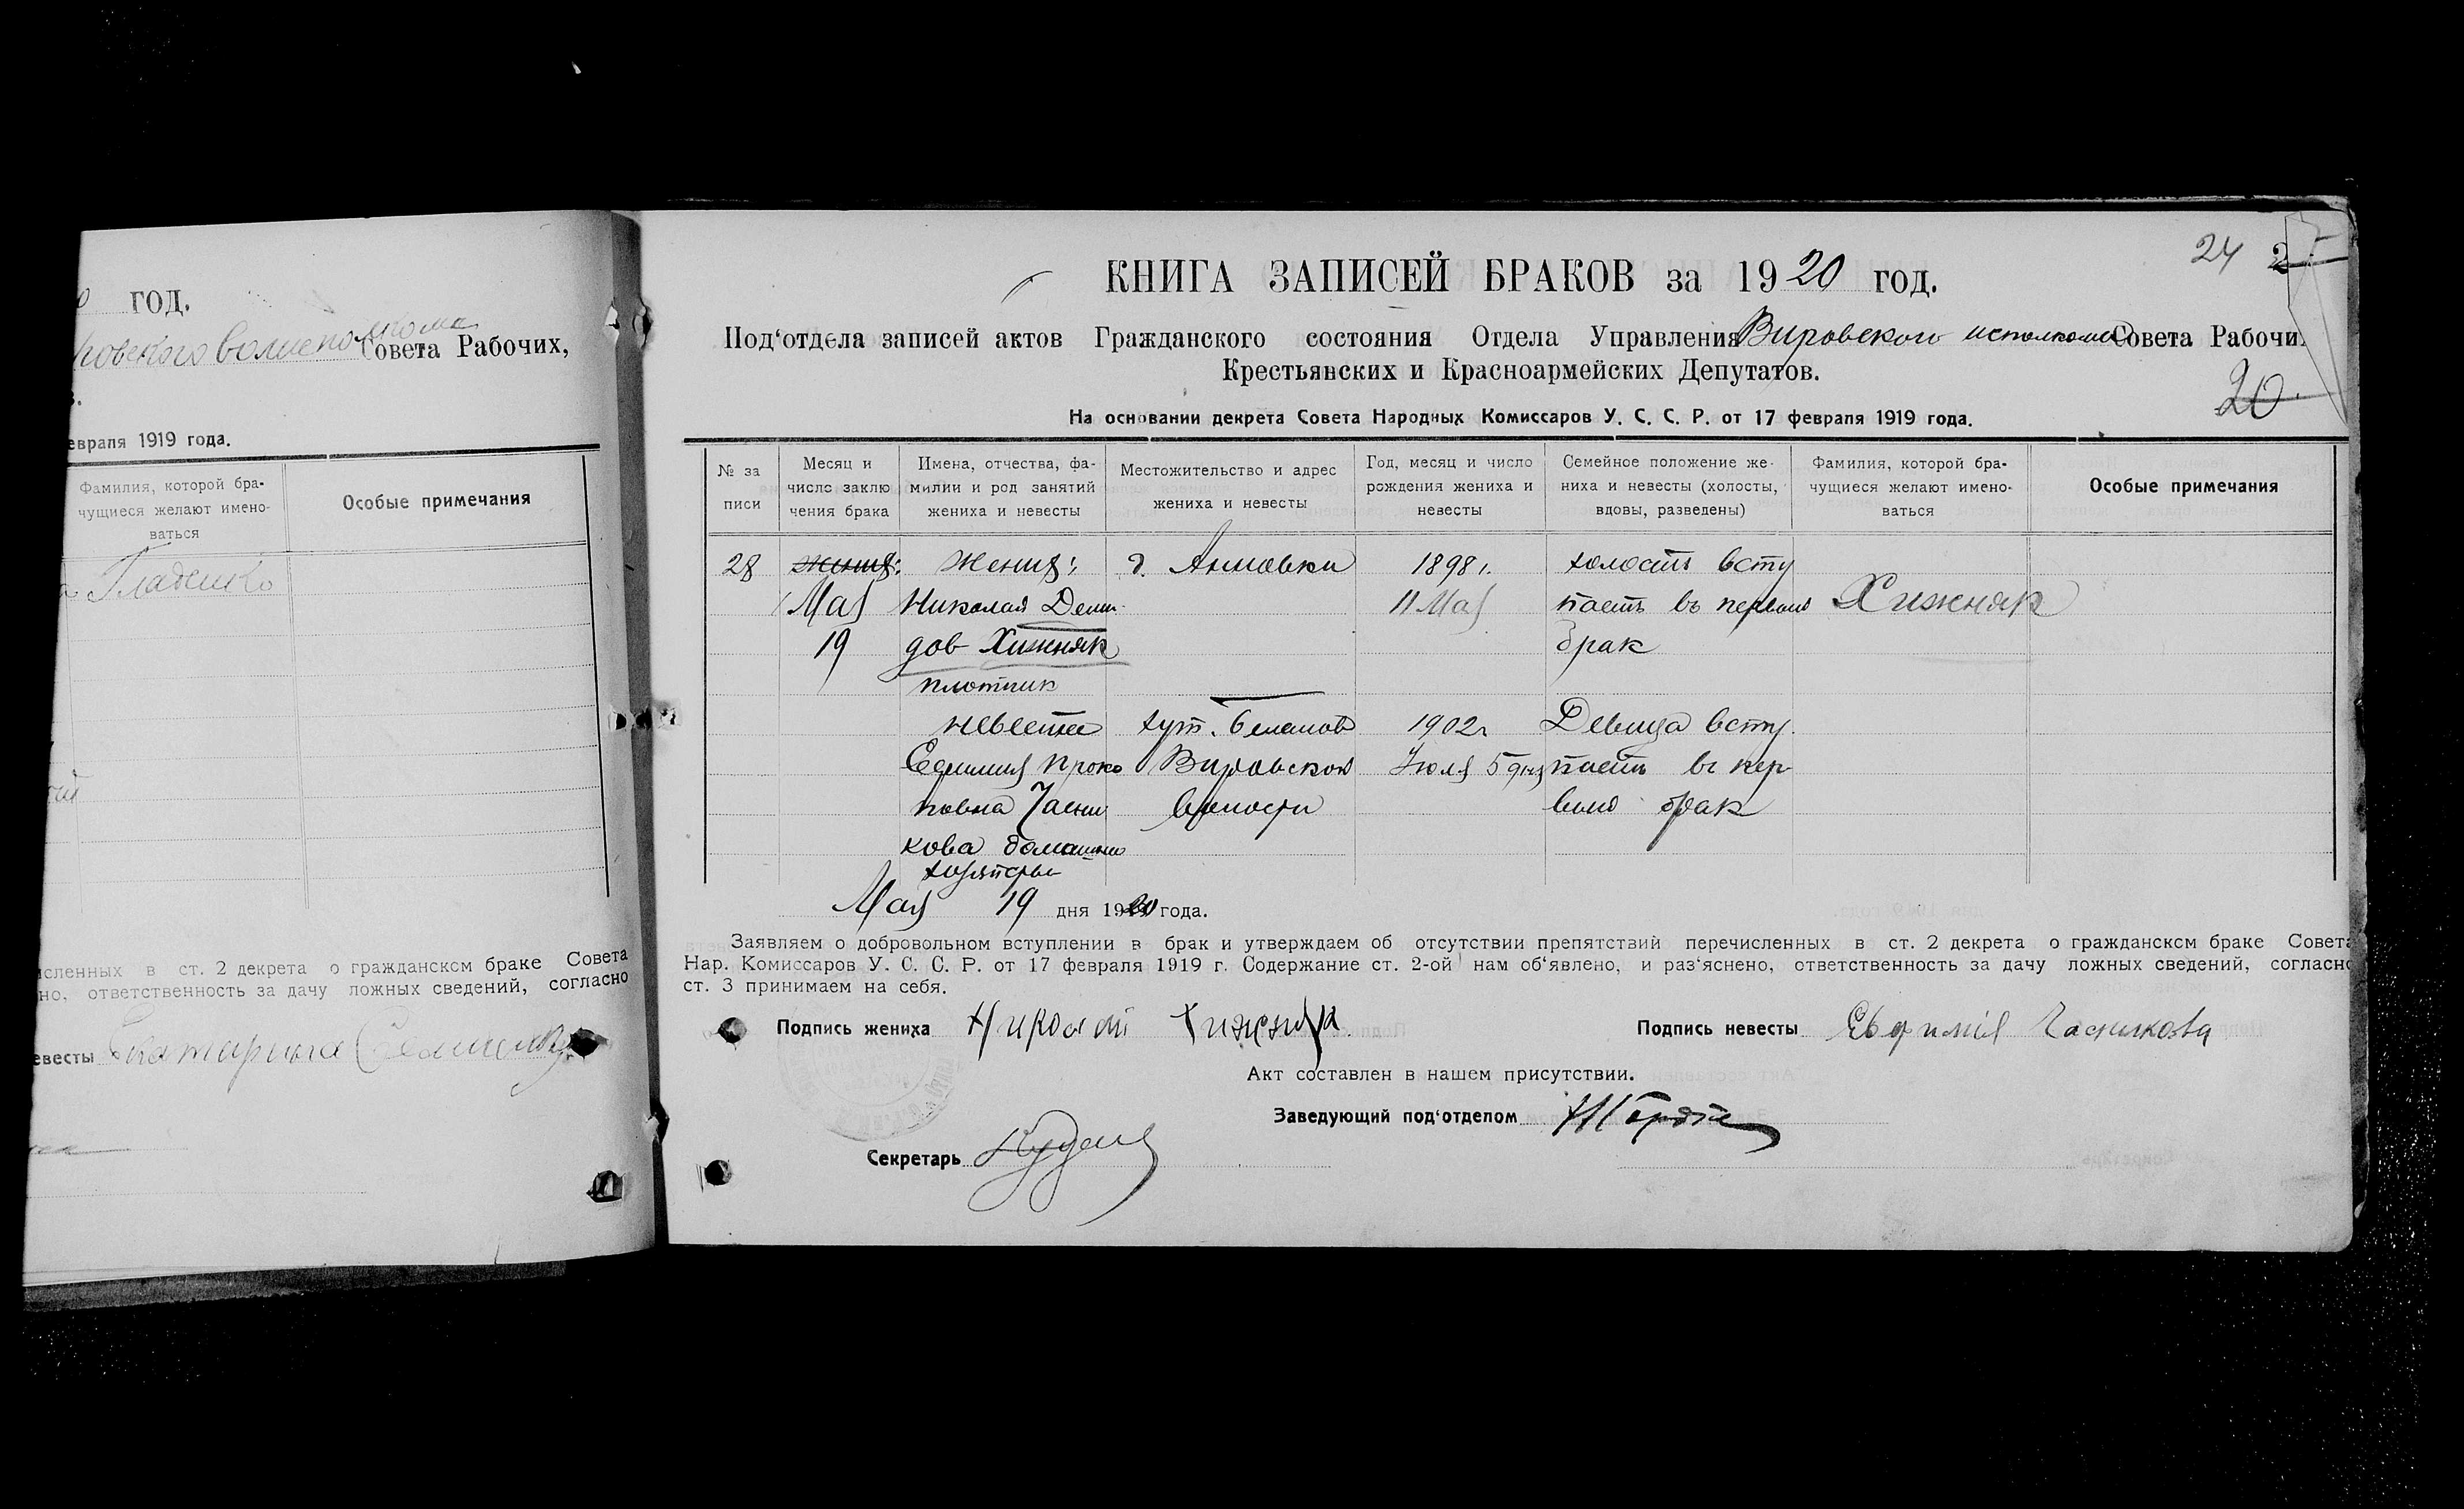 год.
Совета Рабочих,
евраля 1919 года.
Фамилия, которой бра-
чущиеся желают имено-
ваться
Особые примечания
Гладенко
исленных в ст. 2 декрета о гражданском браке Совета
но, ответственность за дачу ложных сведений, согласно
евесты Екатерина
24
КНИГА ЗАПИСЕЙ БРАКОВ за 1920 год.
Под'отдела записей актов Гражданского состояния Отдела Управления Вировского исполкома Совета Рабочи
Крестьянских и Красноармейских Депутатов.
20
На основании декрета Совета Народных Комиссаров У. С. С. Р. от 17 февраля 1919 года.
№ за
писи
Месяц и
число заклю
чения брака
Имена, отчества, фа-
милии и род занятий
жениха и невесты
Местожительство и адрес
жениха и невесты
Год, месяц и число
рождения жениха и
невесты
Семейное положение же-
ниха и невесты (холосты,
вдовы, разведены)
Фамилия, которой бра-
чущиеся желают имено-
ваться
Особые примечания
28 жених: Жених: д. Анновки 1898 г. холостъ всту
Мая Николай Деми- 11 Мая паетъ въ первый Хижняк
19 дов Хижняк брак
плотник
невеста хут. 1902 г Девица всту-
Ефимия Проко Вировской Июля 5 дня паетъ въ пер-
повна Часни волости вый брак
кова
Мая 19 дня 1920 года.
Заявляем о добровольном вступлении в брак и утверждаем об отсутствии препятствий перечисленных в ст. 2 декрета о гражданском браке Совета
Нар. Комиссаров У. С. С. Р. от 17 февраля 1919 г. Содержание ст. 2-ой нам об'явлено, и раз'яснено, ответственность за дачу ложных сведений, согласно
ст. 3 принимаем на себя.
Подпись жениха Николай Хижняк
Подпись невесты Евфимия Часникова
Акт составлен в нашем присутствии.
Заведующий под'отделом
Секретарь